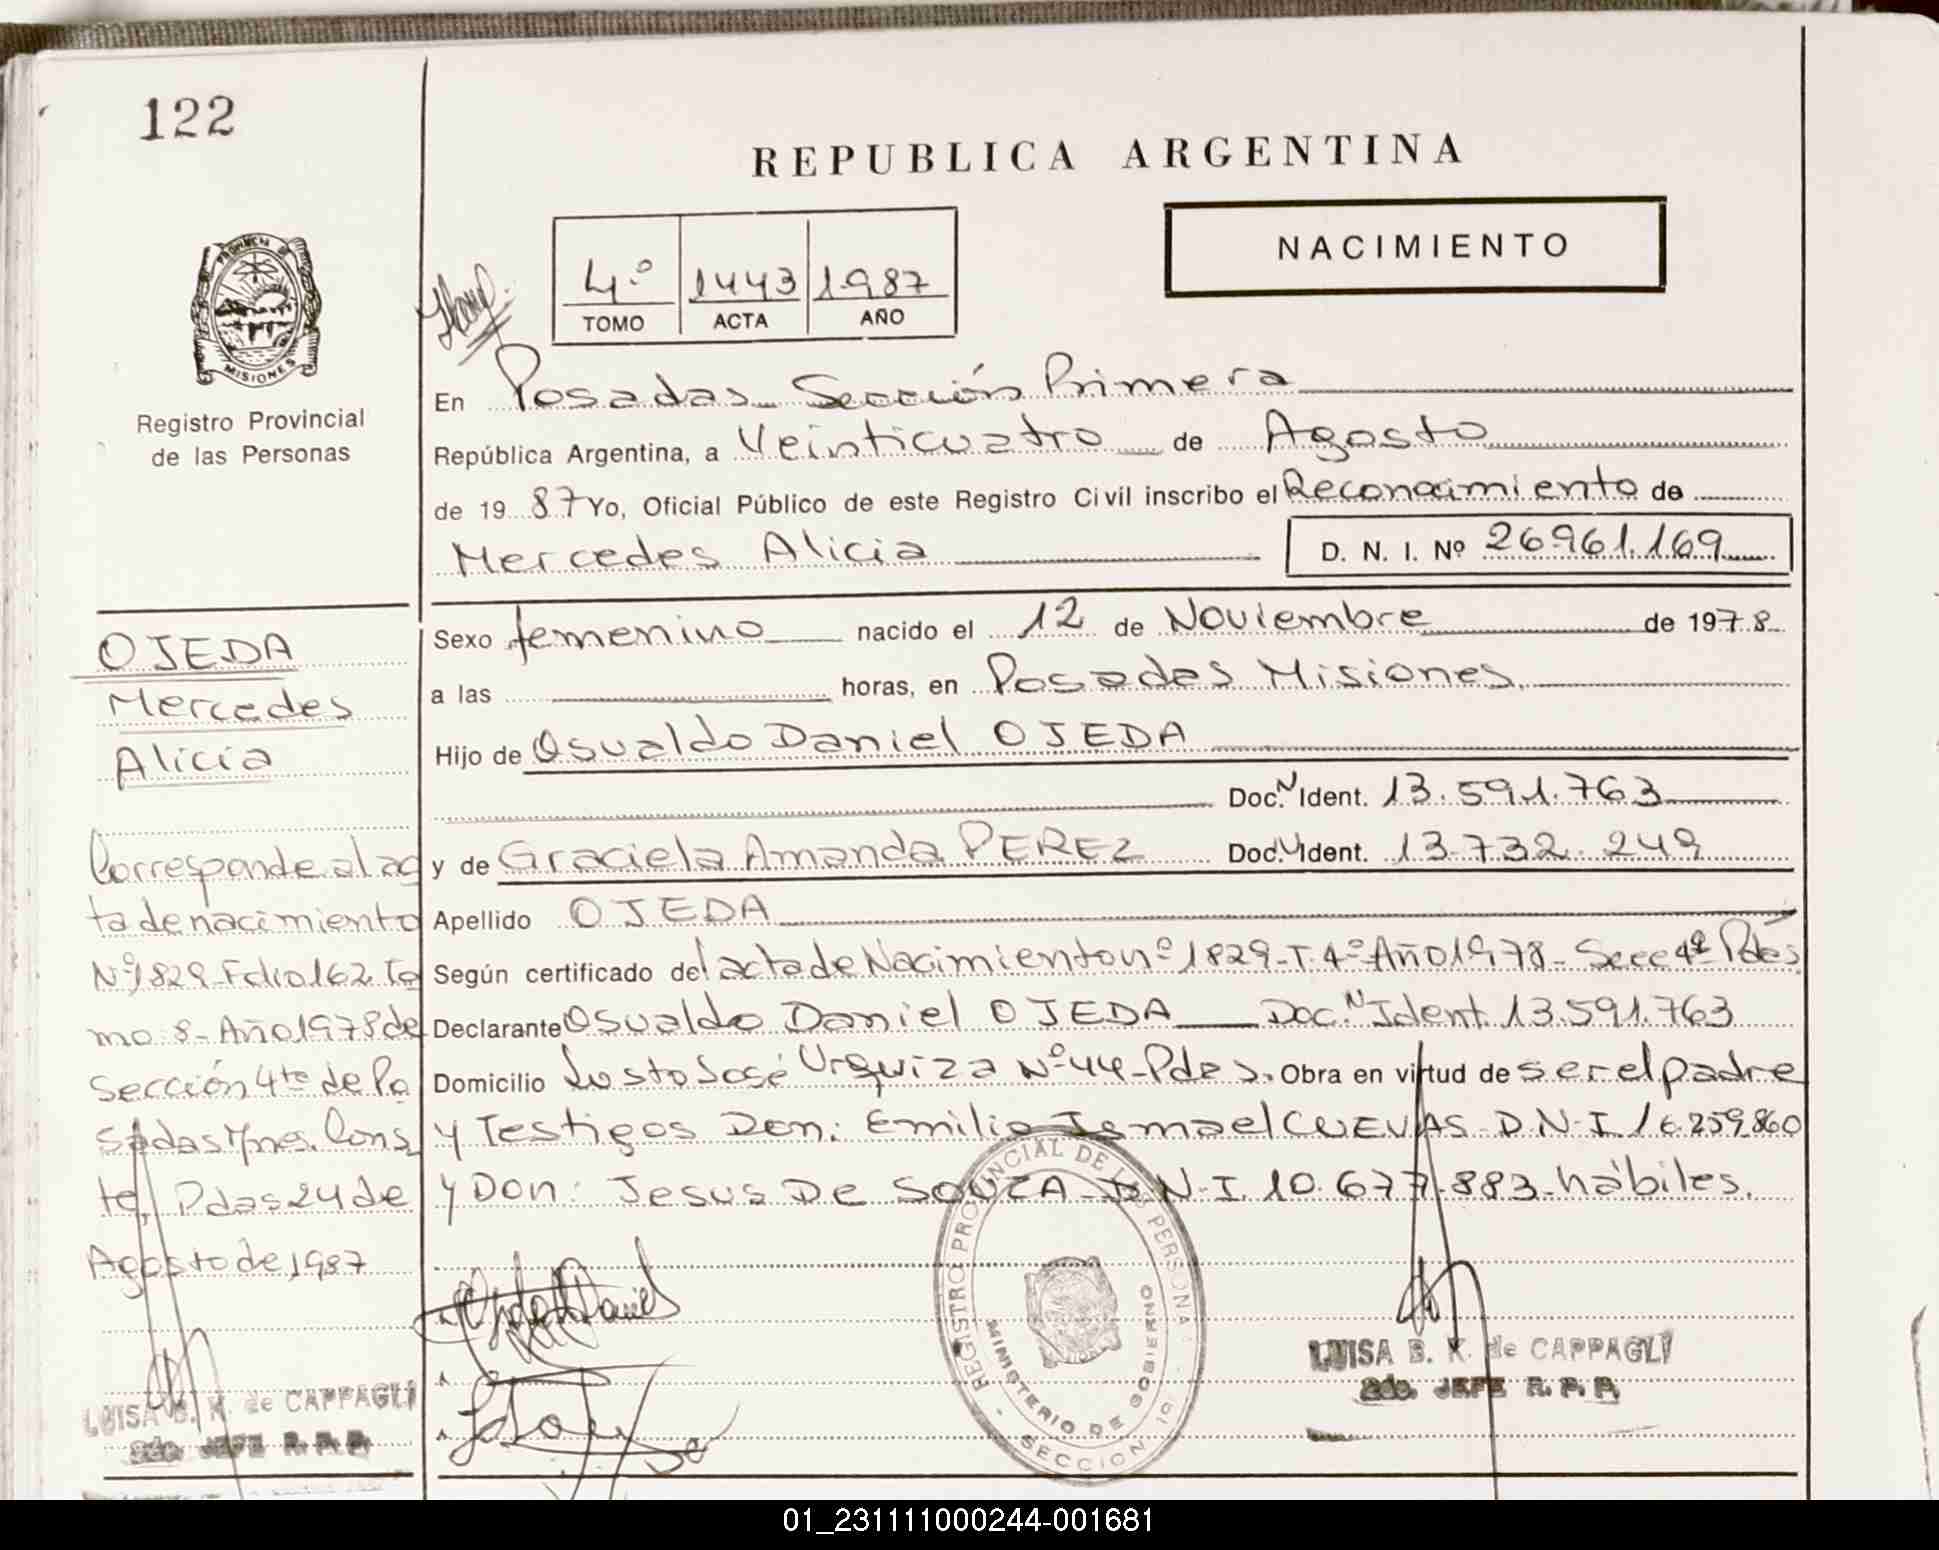 122
REPUBLICA ARGENTINA
NACIMIENTO
4.º 1443 1987
TOMO ACTA AÑO
PROVINCIA DE
MISIONES
Registro Provincial
de las Personas
En Posadas Sección Primera
República Argentina, a Veinticuatro de Agosto
de 19 87 Yo, Oficial Público de este Registro Civil inscribo el Reconocimiento de
Mercedes Alicia D. N. I. Nº 26961.169
Sexo femenino nacido el 12 de Noviembre de 1978
a las horas, en Posadas Misiones.
Hijo de Osvaldo Daniel OJEDA
Doc. N Ident. 13.591.763
y de Graciela Amanda PEREZ Doc. N Ident. 13.732.249
Apellido OJEDA
Según certificado del acta de Nacimiento nº 1829-T.4º-Año 1978-Secc 4ª Pdas
Declarante Osvaldo Daniel OJEDA Doc. N Ident. 13.591.763
Domicilio Justo José Urquiza Nº 44-Pdas. Obra en virtud de ser el padre
y Testigos Don: Emilio Ismael CUEVAS D.N.I. 16.259.860
y Don: Jesus DE SOUZA-D.N.I. 10.677.883-hábiles.
OJEDA
Mercedes
Alicia
Corresponde al ac
ta de nacimiento
Nº 1829-Folio 162 To
mo 8-Año 1978 de
Sección 4ta de Po
sadas Mnes. Cons
te, Pdas 24 de
Agosto de 1987
LUISA B. K. de CAPPAGLI
2do. JEFE R. P. P.
REGISTRO PROVINCIAL DE LAS PERSONAS
MINISTERIO DE GOBIERNO
SECCION 1ª
LUISA B. K. de CAPPAGLI
2do. JEFE R. P. P.
01_231111000244-001681